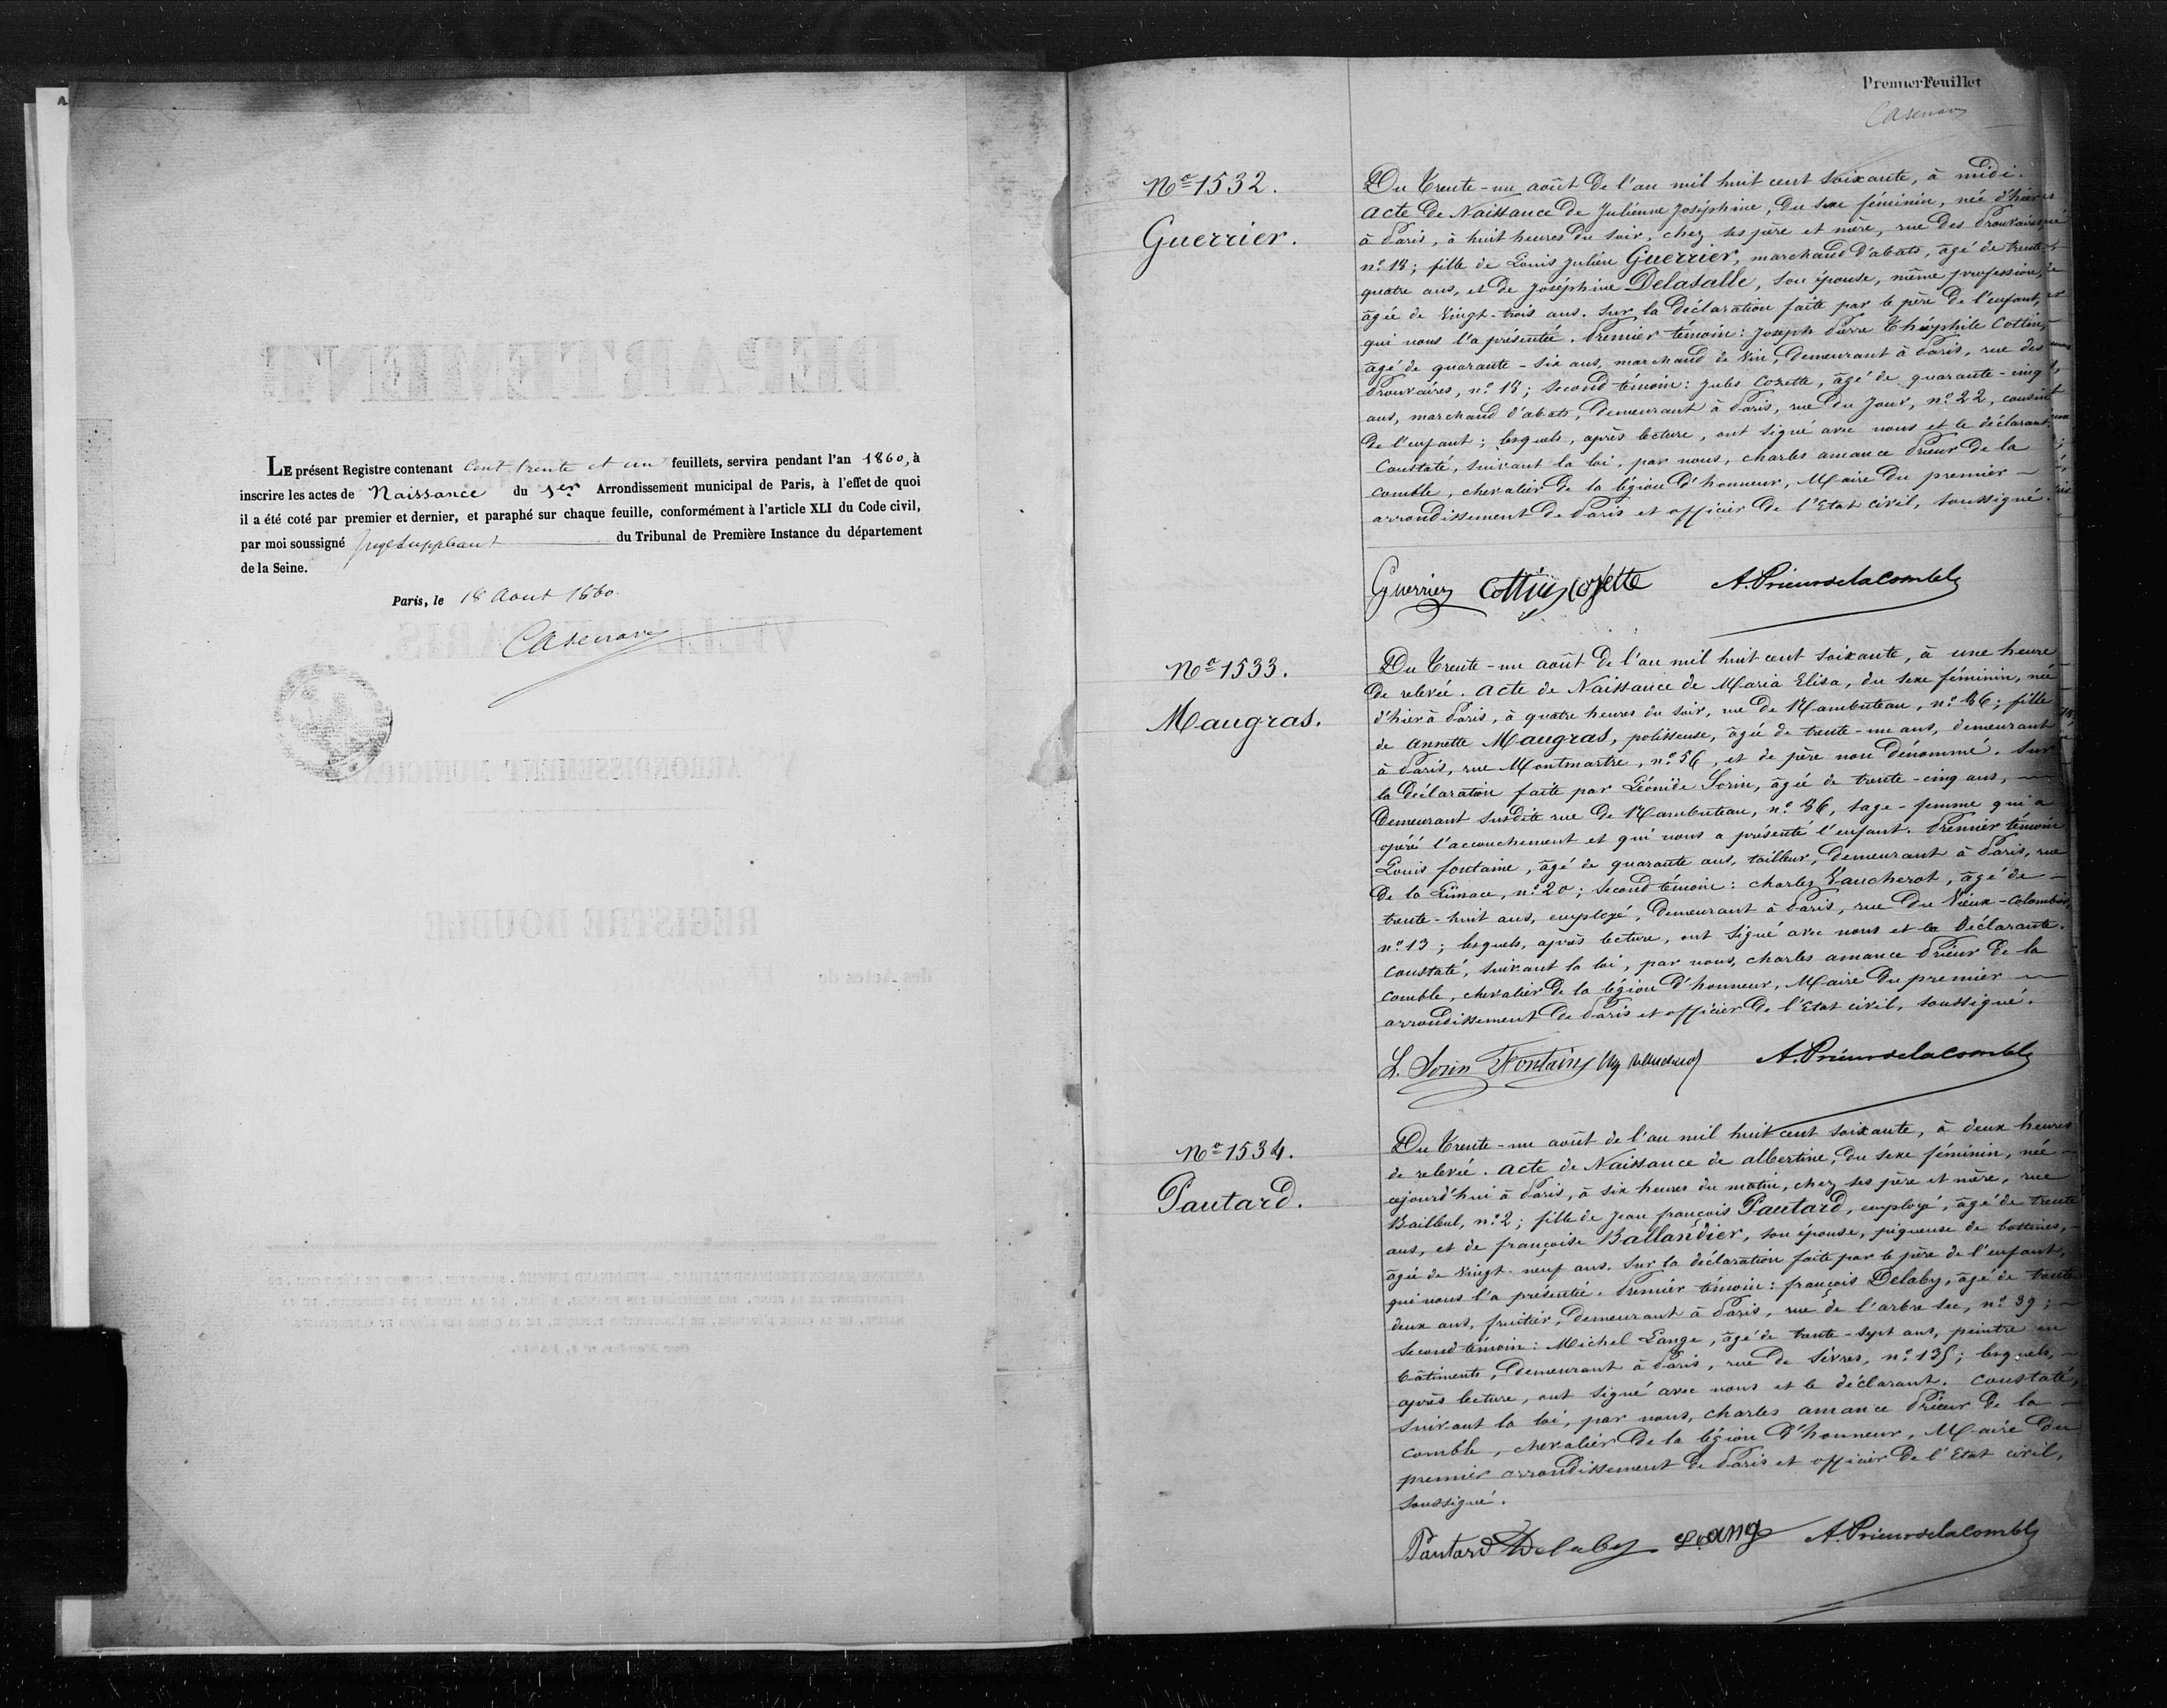 LE présent Registre contenant Cent trente et un feuillets, servira pendant l'an 1860, à
inscrire les actes de Naissance du 1er Arrondissement municipal de Paris, à l'effet de quoi
il a été coté par premier et dernier, et paraphé sur chaque feuille, conformément à l'article XLI du Code civil,
par moi soussigné juge suppléant du Tribunal de Première Instance du département
de la Seine.
Paris, le 18 Aout 1860.
Casenave
Premier Feuillet
Casenave
No 1532.
Guerrier.
Du trente-un août de l'an mil huit cent soixante, à midi.
acte de Naissance de Julienne Joséphine, du sexe féminin, née d'hier
à Paris, à huit heures du soir, chez ses père et mère, rue des Prouvaires,
no 18; fille de Louis Julien Guerrier, marchand d'abats, âgé de trente-
quatre ans, et de Joséphine Delasalle, son épouse, même profession,
âgée de vingt-trois ans. Sur la déclaration faite par le père de l'enfant,
qui nous l'a présentée. Premier témoin: Joseph Pierre Théophile Cottin,
âgé de quarante-six ans, marchand de vin, demeurant à Paris, rue des
Prouvaires, no 18; second témoin: Jules Cozette, âgé de quarante-cinq
ans, marchand d'abats, demeurant à Paris, rue du Jour, no 22, cousin
de l'enfant; lesquels, après lecture, ont signé avec nous et le déclarant.
Constaté, suivant la loi, par nous, charles amance Prieur de la
comble, chevalier de la légion d'honneur, Maire du premier
arrondissement de Paris et officier de l'Etat civil, soussigné.
Guerrier Cottin Cozette A. Prieur de la Comble
No 1533.
Maugras.
Du trente-un août de l'an mil huit cent soixante, à une heure
de relevée. acte de Naissance de Maria Elisa, du sexe féminin, née
d'hier à Paris, à quatre heures du soir, rue de Rambuteau, no 86; fille
de annette Maugras, polisseuse, âgée de trente-un ans, demeurant
à Paris, rue Montmartre, no 56, et de père non dénommé. Sur
la déclaration faite par Léonide Sorin, âgée de trente-cinq ans,
demeurant susdite rue de Rambuteau, no 86, sage-femme qui a
opéré l'accouchement et qui nous a présenté l'enfant. Premier témoin
Louis fontaine, âgé de quarante ans, tailleur, demeurant à Paris, rue
de la Limace, no 20; second témoin: charles Vaucherot, âgé de
trente-huit ans, employé, demeurant à Paris, rue du Vieux-Colombier,
no 13; lesquels, après lecture, ont signé avec nous et la déclarante.
Constaté, suivant la loi, par nous, charles amance Prieur de la
comble, chevalier de la légion d'honneur, Maire du premier
arrondissement de Paris et officier de l'Etat civil, soussigné.
L. Sorin Fontaine A. Prieur de la Comble
No 1534.
Pautard.
Du trente-un août de l'an mil huit cent soixante, à deux heures
de relevée. acte de Naissance de albertine, du sexe féminin, née
cejourd'hui à Paris, à six heures du matin, chez ses père et mère, rue
Bailleul, no 2; fille de Jean françois Pautard, employé, âgé de trente
ans, et de françoise Ballandier, son épouse, piqueuse de bottines,
âgée de vingt-neuf ans. Sur la déclaration faite par le père de l'enfant,
qui nous l'a présentée. Premier témoin: françois Delaby, âgé de trente
deux ans, fruitier, demeurant à Paris, rue de l'arbre sec, no 39;
second témoin: Michel Lange, âgé de trente-sept ans, peintre en
bâtiments, demeurant à Paris, rue de Sèvres, no 135; lesquels,
après lecture, ont signé avec nous et le déclarant. Constaté,
suivant la loi, par nous, charles amance Prieur de la
comble, chevalier de la légion d'honneur, Maire du
premier arrondissement de Paris et officier de l'Etat civil,
soussigné.
Pautard Delaby Lange A. Prieur de la Comble